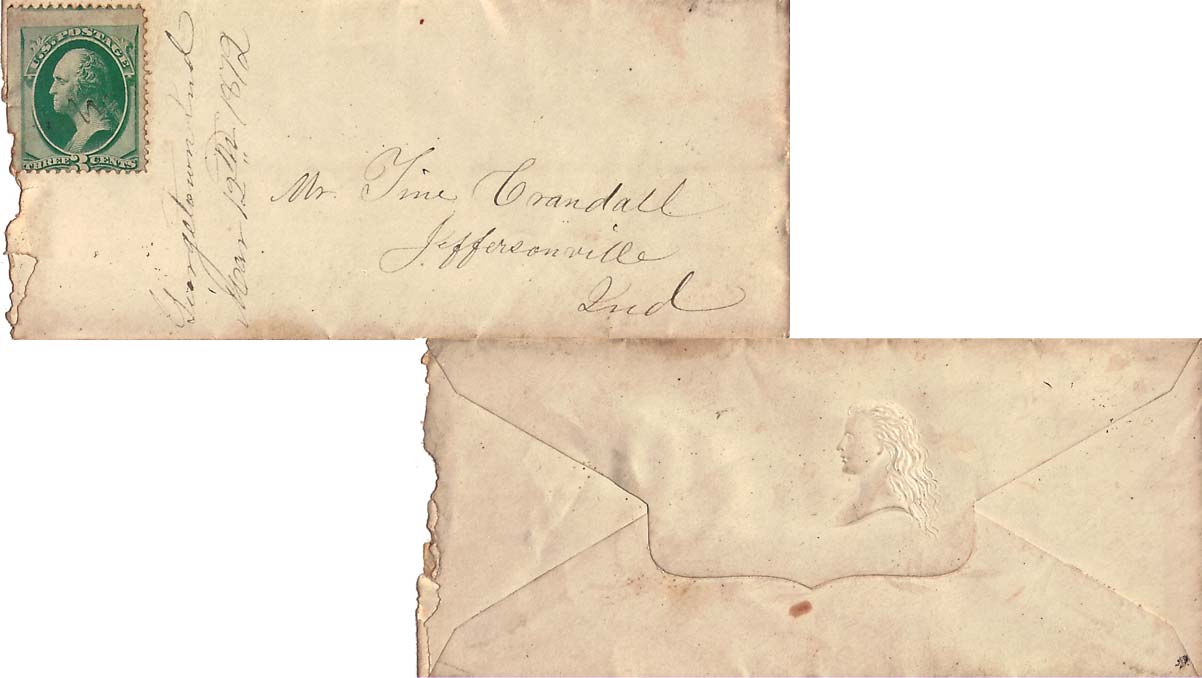 U.S. POSTAGE
THREE 3 CENTS
Georgetown Ind
Mar 12th 1872
Mr. Tine Crandall
Jeffersonville
Ind